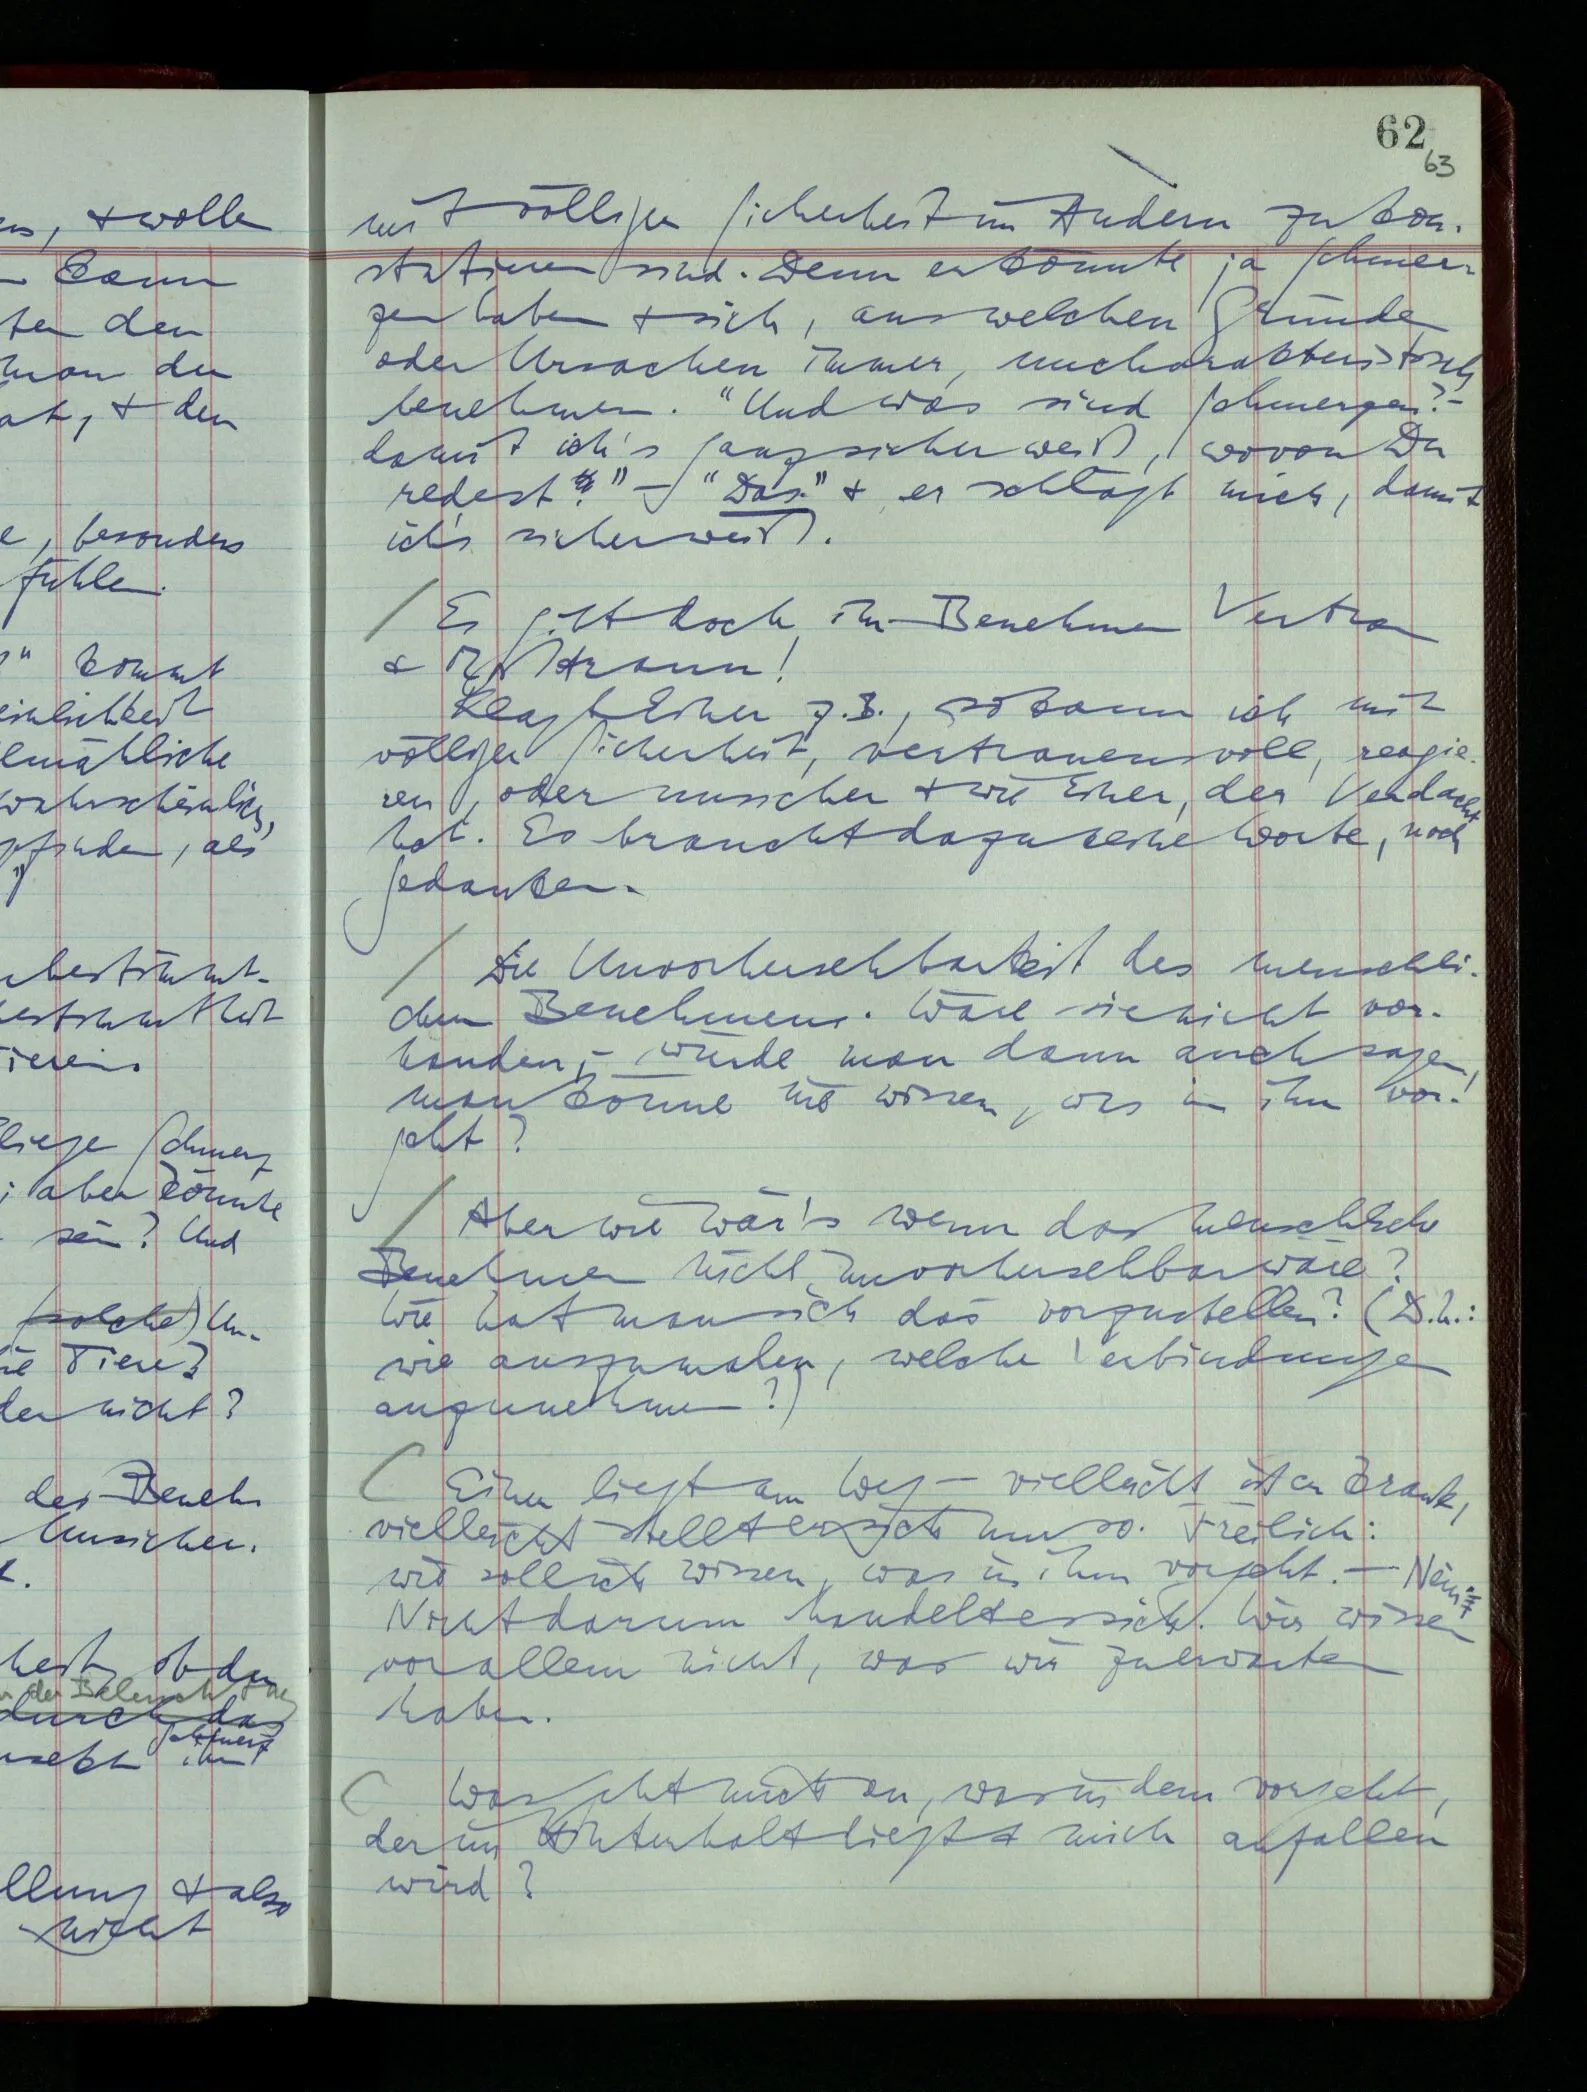 ns, & wolle
n kann
ten den
man du
at, & den
e, besonders
fühlen.
s" kommt
einlichkeit
llmähliche
wahrscheinlich,
pfinden, als
nbestimmt-
bestimmtheit
Tieren.
Fliege Schmerz
; aber könnte
sein? Und
(solche) Un-
die Tiere?
der nicht?
des Beneh
Unsicher.
t.
heit, ob der
n der Beleuchtung
durch das
Schmerz
ihm
llung & also
nicht
62
63
mit völliger Sicherheit im Andern zu kon-
statieren sind. Denn er könnte ja Schmer-
zen haben & sich, aus welchen Gründen
oder Ursachen immer, uncharakteristisch
benehmen. "Und was sind Schmerzen? –
damit ich's ganz sicher weiß, wovon Du
redest?" – "Das." & er schlägt mich, damit
ich's sicher weiß.
/ Es gibt doch im Benehmen Vertraun
& Mißtraun!
Klagt Einer z.B., so kann ich mit
völliger Sicherheit, vertrauensvoll, reagie-
ren, oder unsicher & wie Einer, der Verdacht
hat. Es braucht dazu keine Worte, noch
Gedanken.
/ Die Unvorhersehbarkeit des menschli-
chen Benehmens. Wäre sie nicht vor-
handen, – würde man dann auch sagen,
man könne nie wissen, was in ihm vor-
geht?
/ Aber wie wär's wenn das menschliche
Benehmen nicht unvorhersehbar wäre?
Wie hat man sich das vorzustellen? (D.h.:
wie auszumalen, welche Verbindungen
anzunehmen?)
C Einer liegt am Weg – vielleicht ist er krank,
vielleicht stellt er sich nur so. Freilich:
wie soll ich wissen, was in ihm vorgeht. – Nein:
Nicht darum handelt es sich. Wir wissen
vor allem nicht, was wir zu erwarten
haben.
C Was geht mich an, was in dem vorgeht,
der im Hinterhalt liegt & mich anfallen
wird?